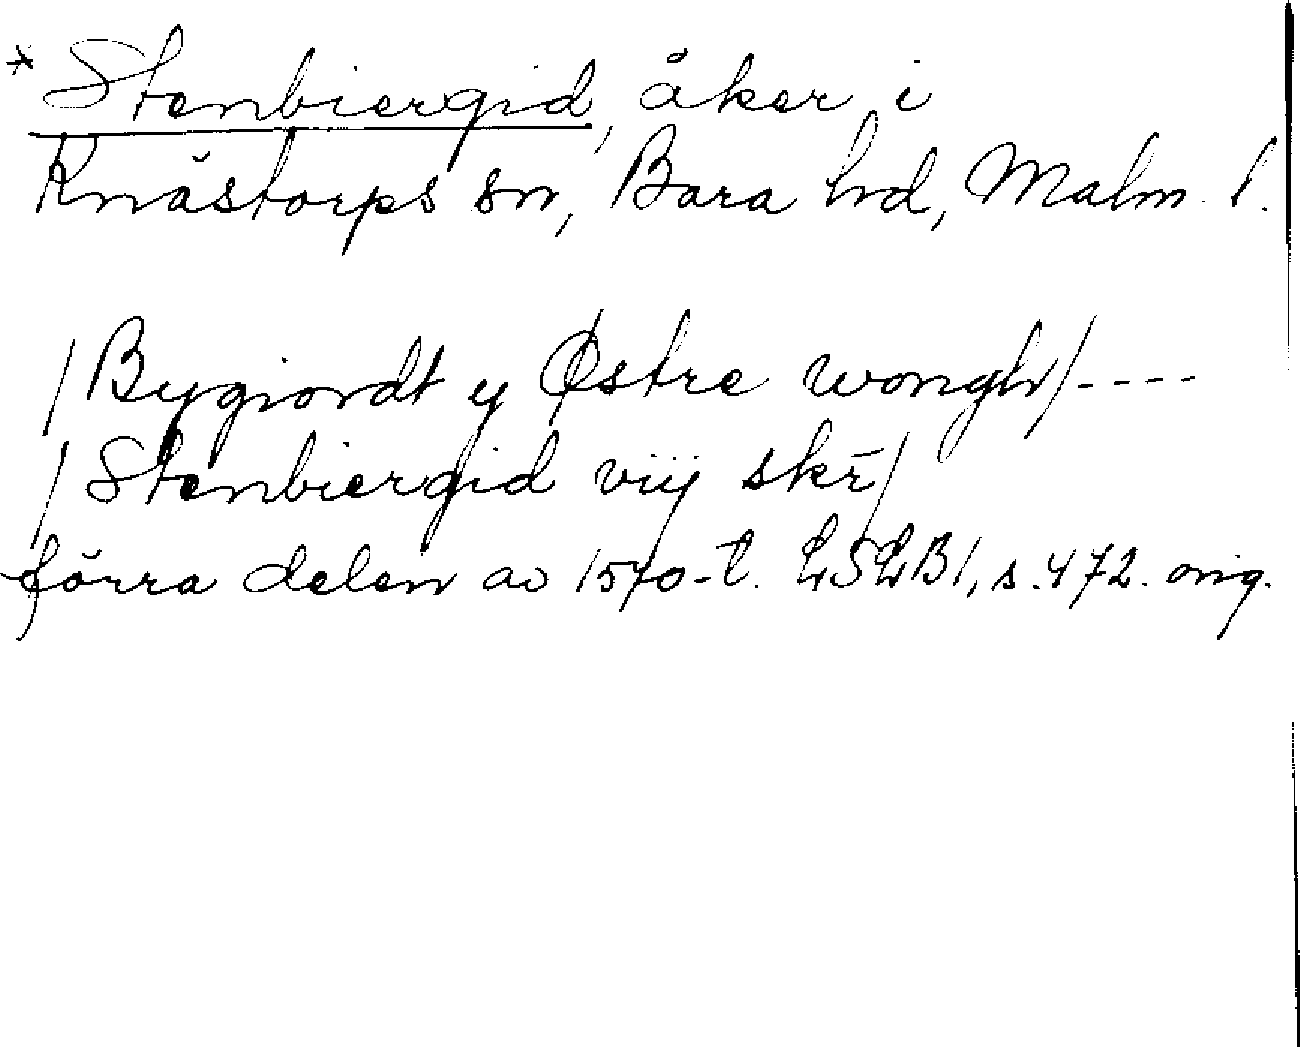 * Stenbiergid, åker i
Knästorps sn, Bara hd, Malm. l.
/Bygiordt y Østre wongh/----
/Stenbiergid viij skr̄/
förra delen av 1570-t. LSLB1, s. 472. orig.